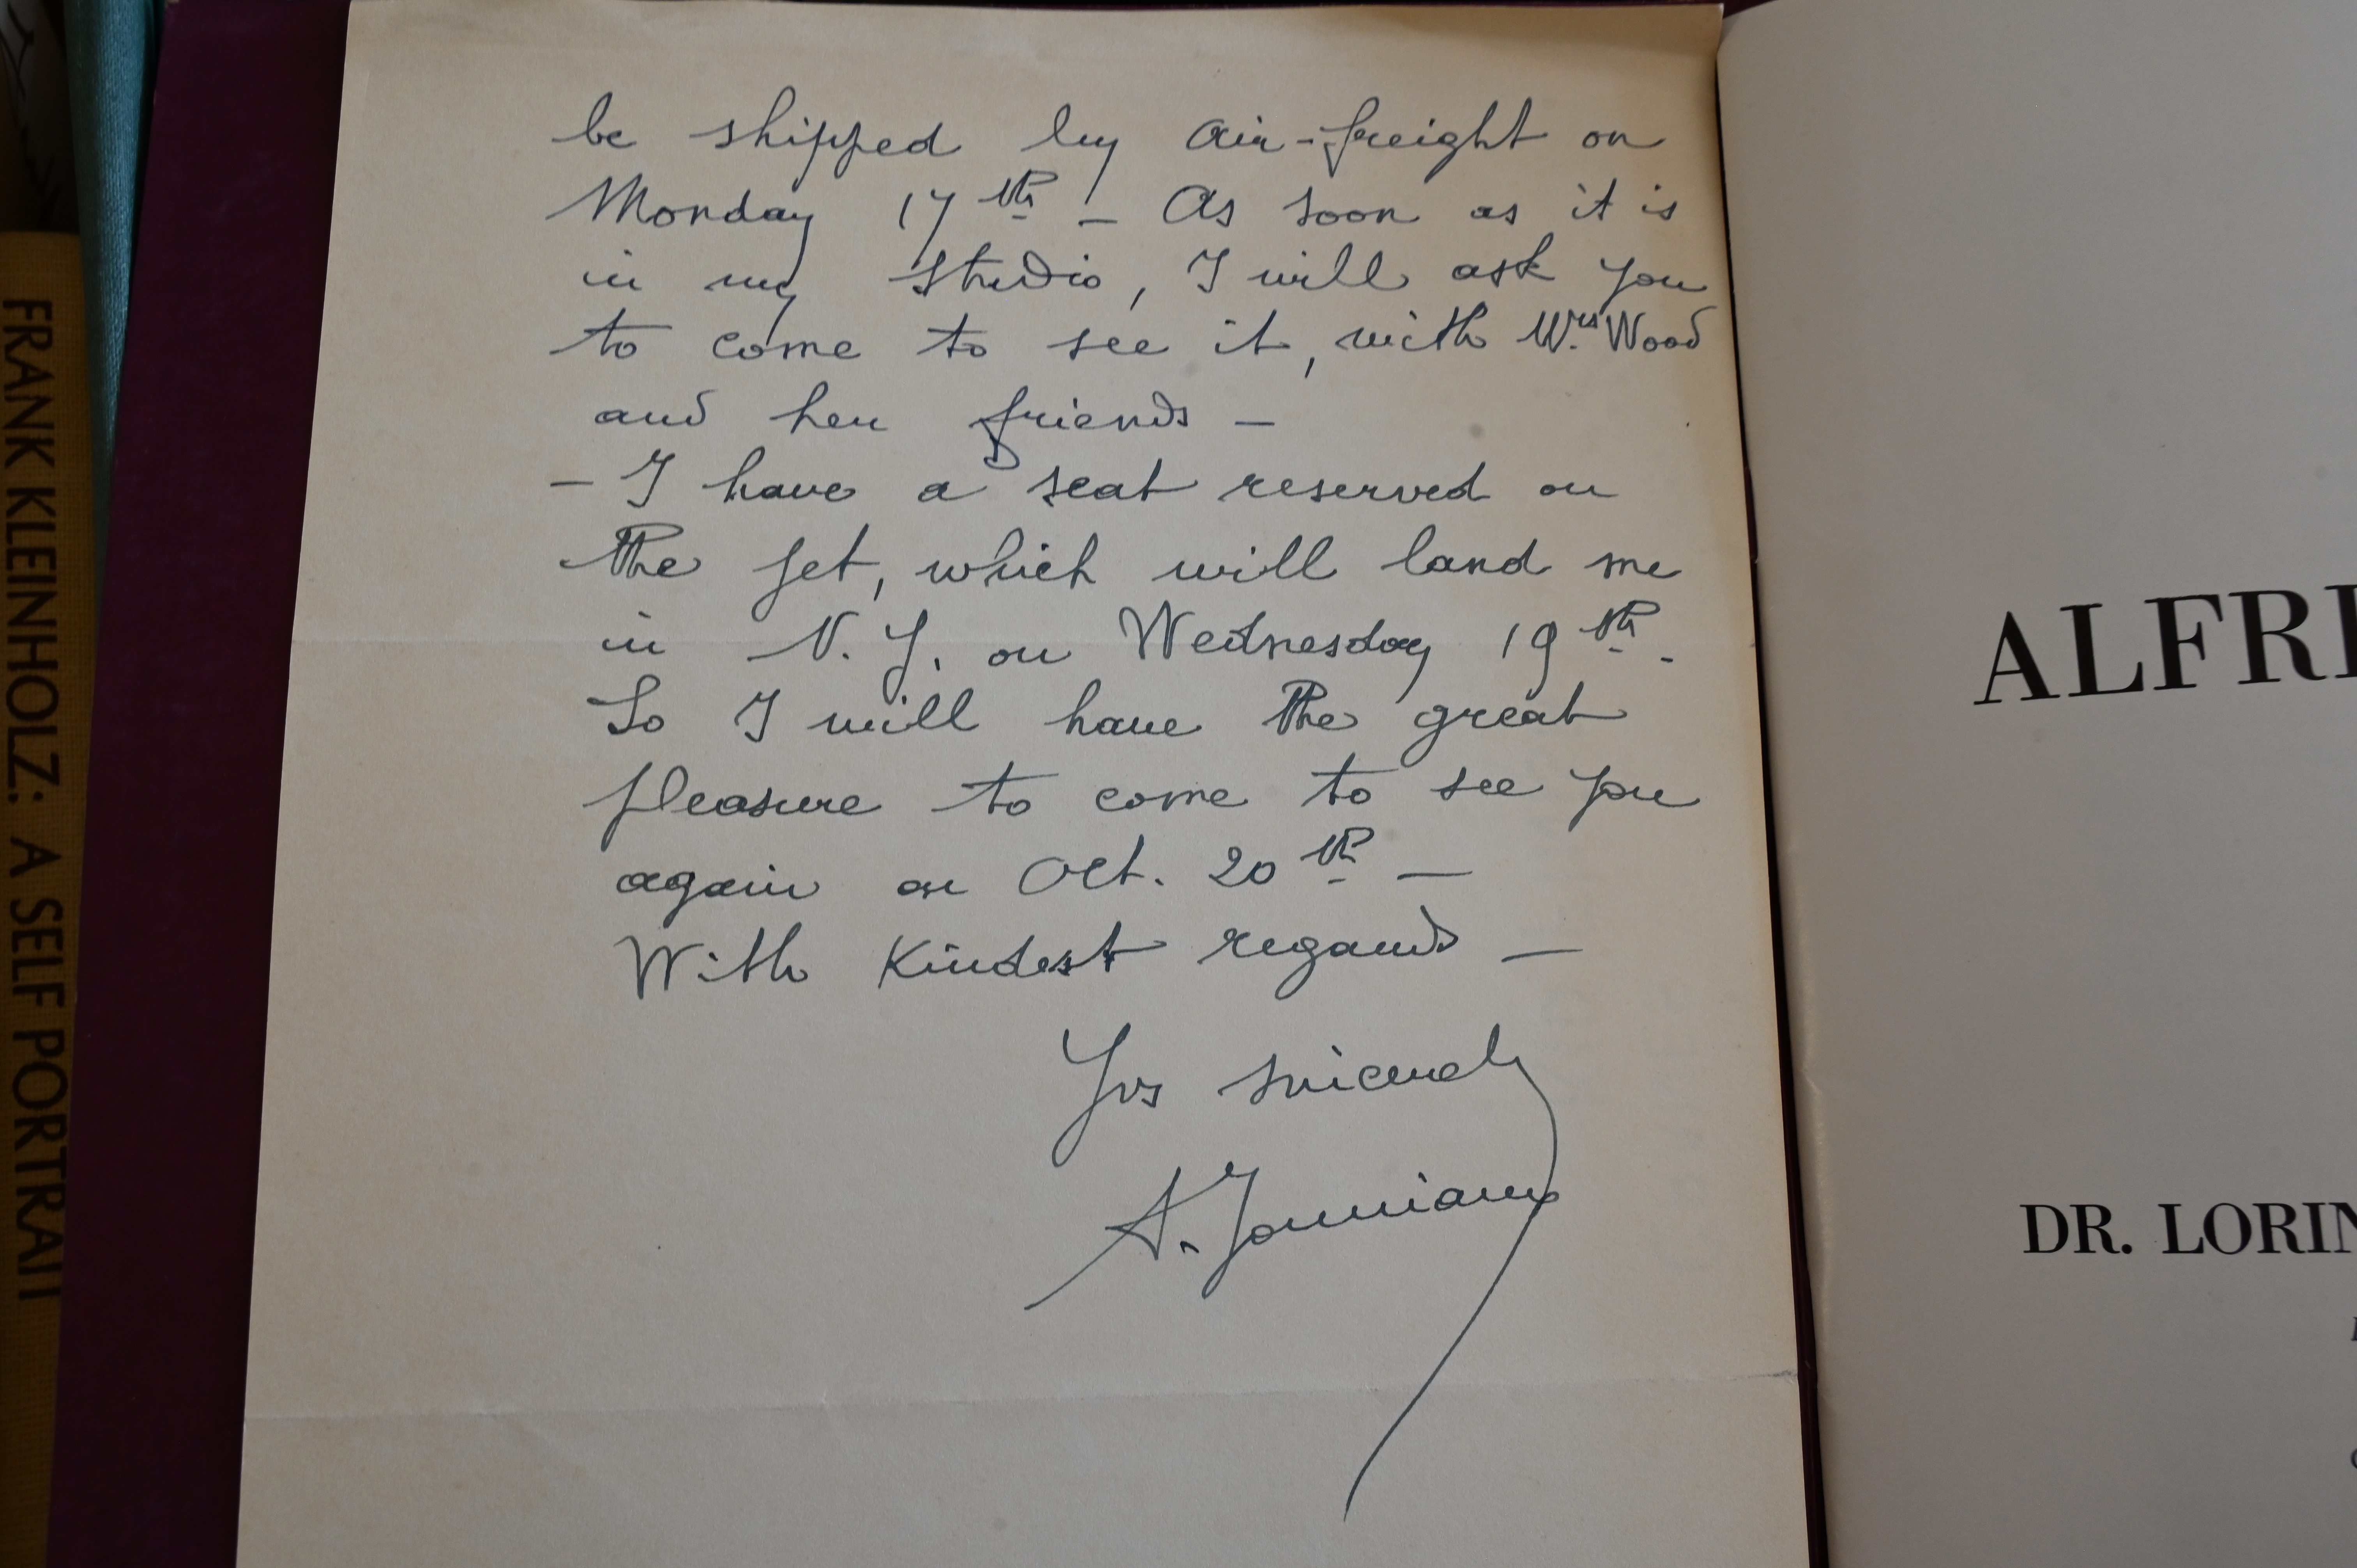 be shipped by air-freight on
Monday 17th – As soon as it is
in my studio, I will ask you
to come to see it, with Mrs Wood
and her friends –
– I have a seat reserved on
the jet, which will land me
in N.Y. on Wednesday 19th.
So I will have the great
pleasure to come to see you
again on Oct. 20th –
With Kindest regards –
Yrs sincerely
A. Jonniaux
FRANK KLEINHOLZ: A SELF PORTRAIT
ALFRE
DR. LORIN